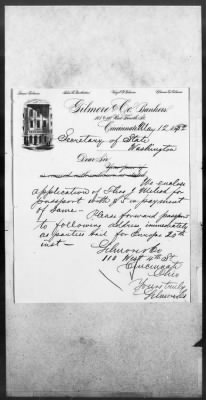 Gilmore & Co. Bankers
110 West Fourth St.
Cincinnati May 12 1882
Secretary of State
Washington
Dear Sir
We enclose
application of Thos J Melish for
passport with $5 in payment
of same - Please forward passport
to following address immediately
as parties sail for Europe 20th
inst
Gilmore & Co
110 West 4th St
Cincinnati
Ohio
Yours truly
Gilmore & Co